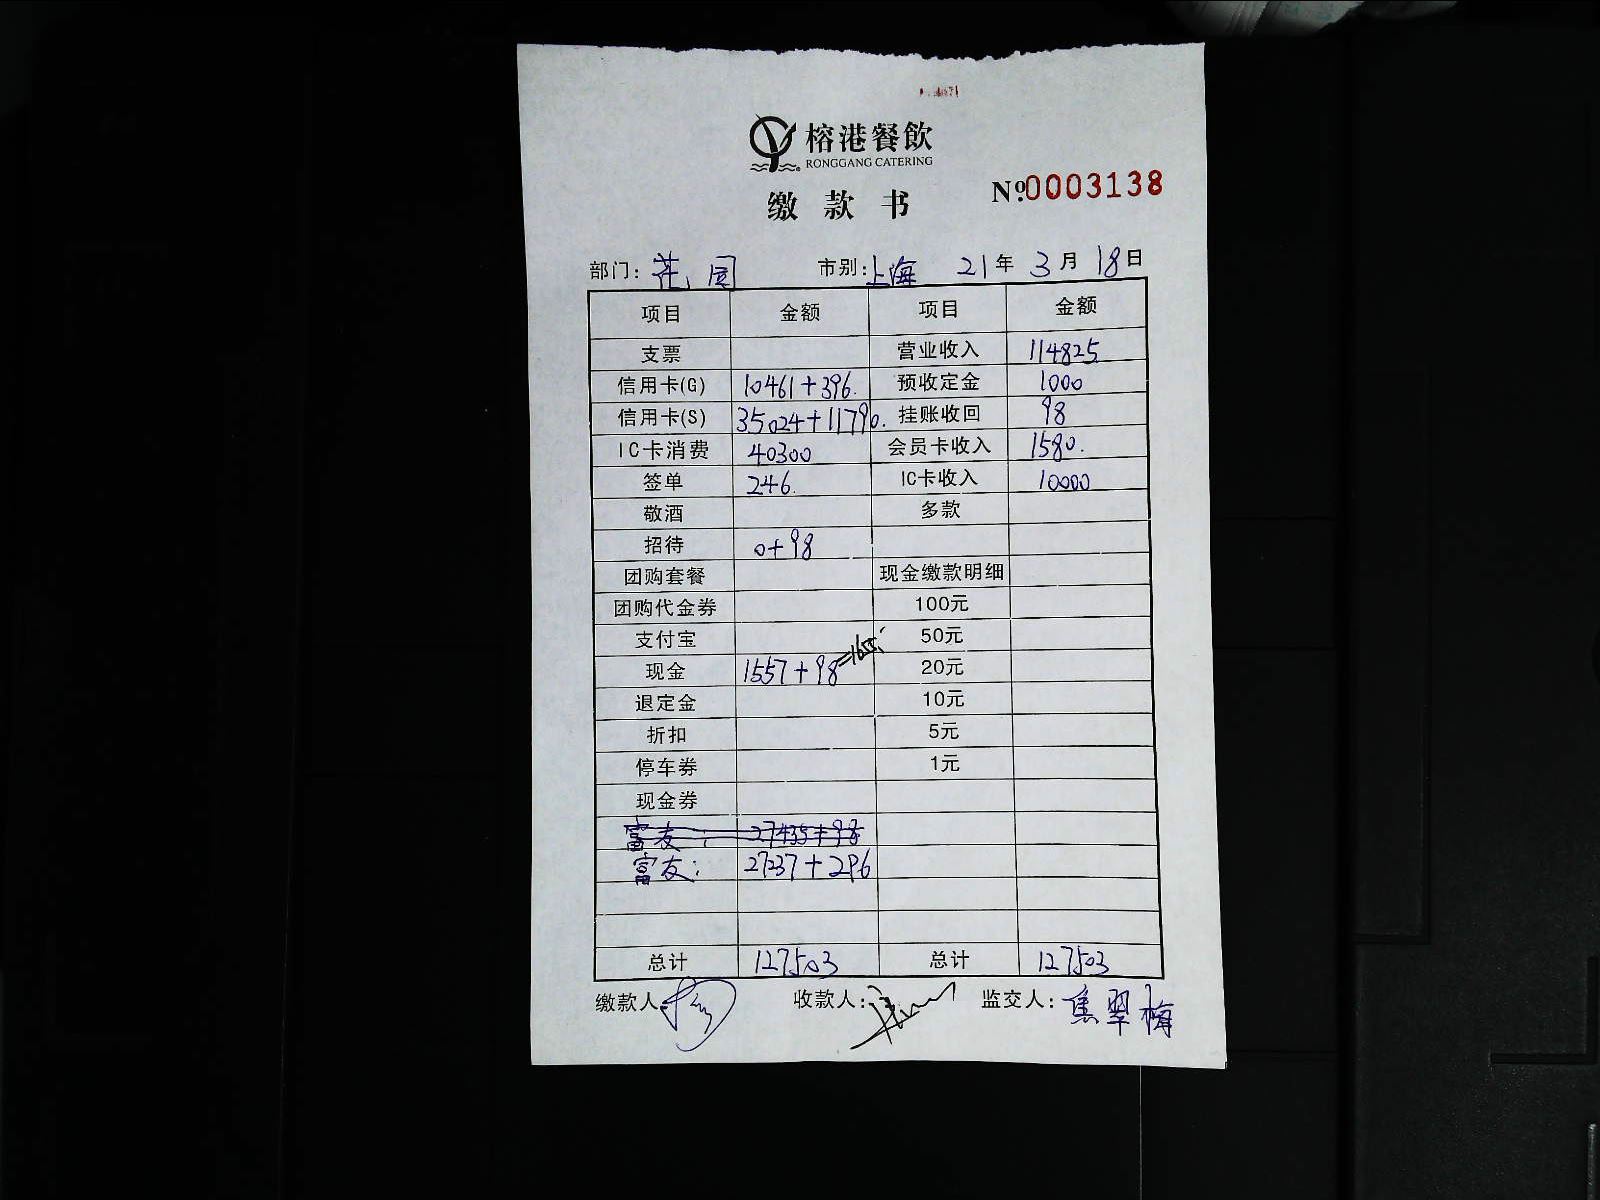 榕港餐飲
RONGGANG CATERING
缴款书
№0003138
部门: 花园 市别: 上海 21年 3月 18日
项目 金额 项目 金额
支票 营业收入 114825
信用卡(G) 10461+396. 预收定金 1000
信用卡(S) 35024+11790. 挂账收回 98
IC卡消费 40300 会员卡收入 1580.
签单 246. IC卡收入 10000
敬酒 多款
招待 0+98
团购套餐 现金缴款明细
团购代金券 100元
支付宝 50元
现金 1557+98=1655. 20元
退定金 10元
折扣 5元
停车券 1元
现金券
富友: 27435+98
富友: 27237+296
总计 127503 总计 127503
缴款人: 收款人: 监交人: 焦翠梅